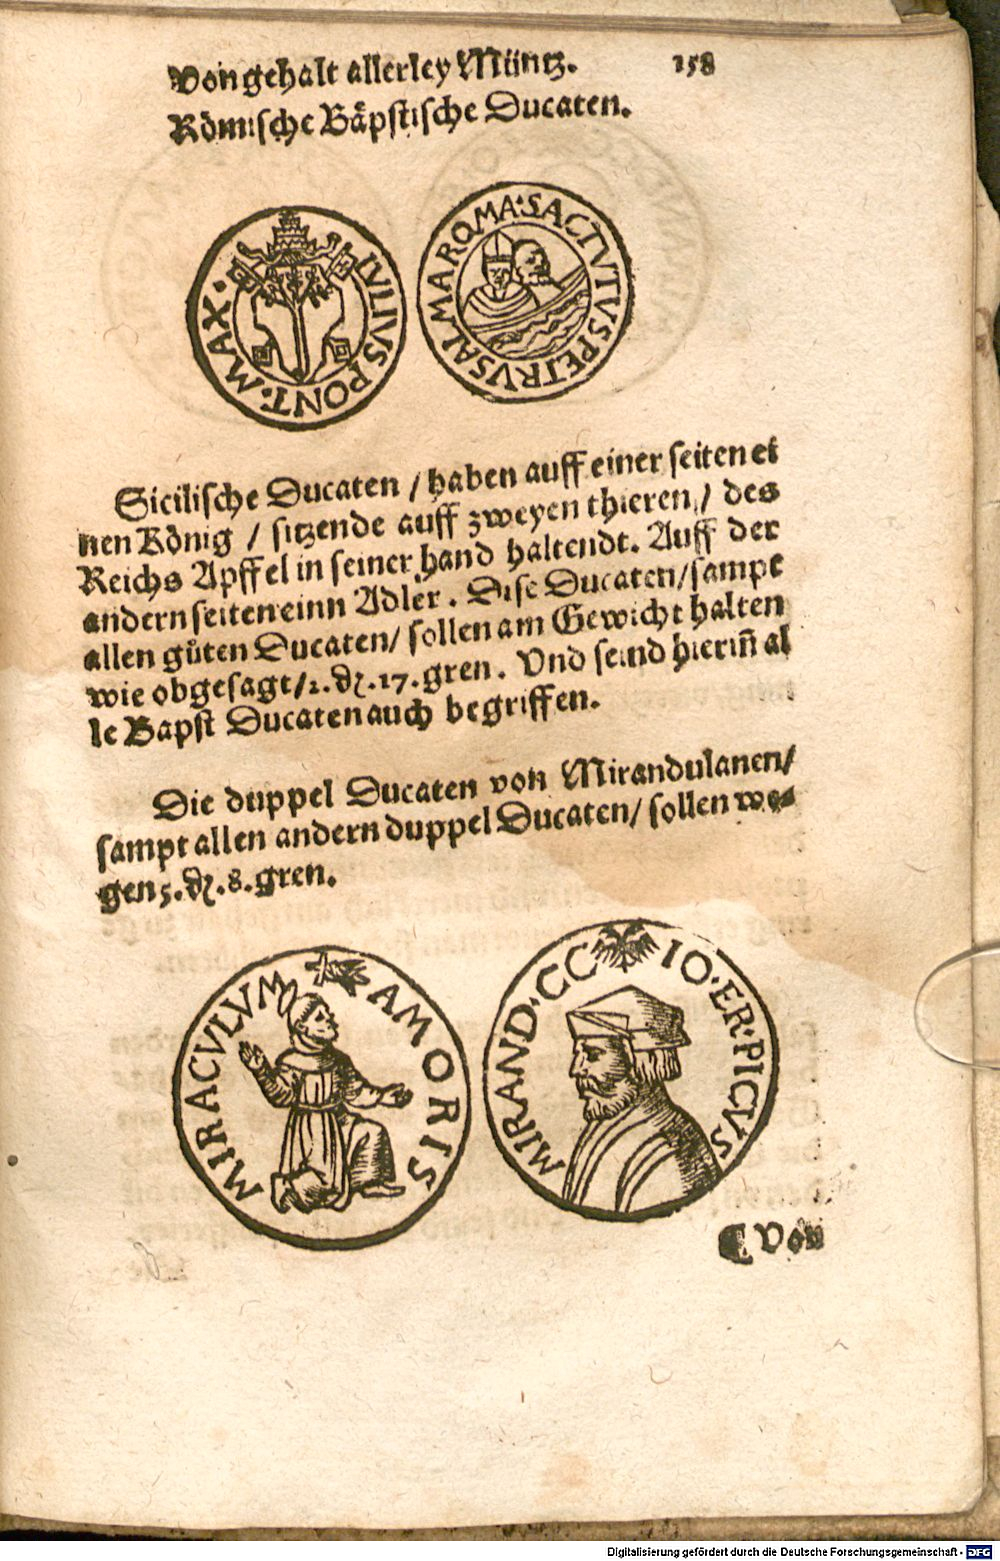 Von gehalt allerley Müntz. 158
Römische Bäpstische Ducaten.
IVLIVS PONT: MAX·
SACTVTVS PETRVS ALMA ROMA·
Sicilische Ducaten / haben auff einer seiten ei
nen König / sitzende auff zweyen thieren / des
Reichs Apffel in seiner hand haltendt. Auff der
andern seiten einn Adler. Dise Ducaten / sampt
allen gůten Ducaten / sollen am Gewicht halten
wie obgesagt / 2. . 17. gren. Vnd seind hieriñ al
le Bapst Ducaten auch begriffen.
Die duppel Ducaten von Mirandulanen /
sampt allen andern duppel Ducaten / sollen we⸗
gen 5. . 8. gren.
MIRACVLVM AMORIS
IO·ER·PICVS MIRAND·CC
Von
Digitalisierung gefördert durch die Deutsche Forschungsgemeinschaft - DFG